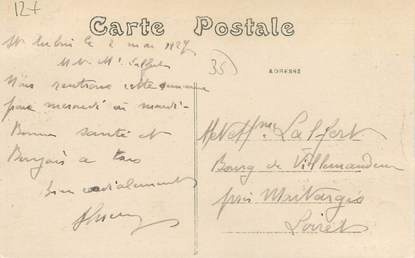 127
Carte Postale
le 2 mai 1927
35
ADRESSE
M. et M.
Nous rentrons cette semaine
pour mercredi ou mardi -
Bonne santé et
Bonjour à tous
Bien cordialement
M et Mme Laffort
Bourg de Villemandeur
près Montargis
Loiret